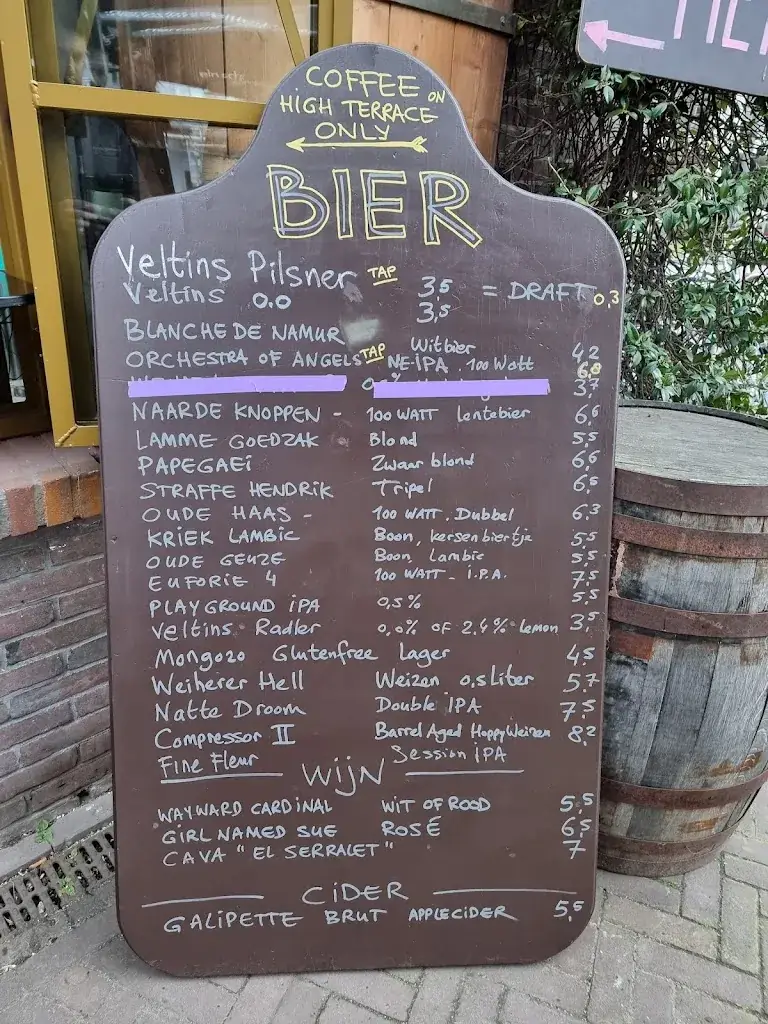 COFFEE ON
HIGH TERRACE
ONLY
BIER
Veltins Pilsner TAP 3,5 = DRAFT 0,3
Veltins 0.0 3,5
BLANCHE DE NAMUR Witbier 4,2
ORCHESTRA OF ANGELS TAP NE-IPA . 100 Watt 6,8
3,7
NAARDE KNOPPEN - 100 WATT lentebier 6,6
LAMME GOEDZAK Blond 5,5
PAPEGAEI Zwaar blond 6,6
STRAFFE HENDRIK Tripel 6,5
OUDE HAAS - 100 WATT . Dubbel 6,3
KRIEK LAMBIC Boon, kersenbiertje 5,5
OUDE GEUZE Boon, Lambic 5,5
EUFORIE 4 100 WATT - I.P.A. 7,5
PLAYGROUND IPA 0,5% 5,5
Veltins Radler 0,0% OF 2.4% lemon 3,5
Mongozo Glutenfree Lager 4,5
Weiherer Hell Weizen 0,5 Liter 5,7
Natte Droom Double IPA 7,5
Compressor II Barrel Aged Hoppy Weizen 8,2
Fine Fleur Session IPA
WIJN
WAYWARD CARDINAL WIT OF ROOD 5,5
GIRL NAMED SUE ROSÉ 6,5
CAVA "EL SERRALET" 7
CIDER
GALIPETTE BRUT APPLECIDER 5,5